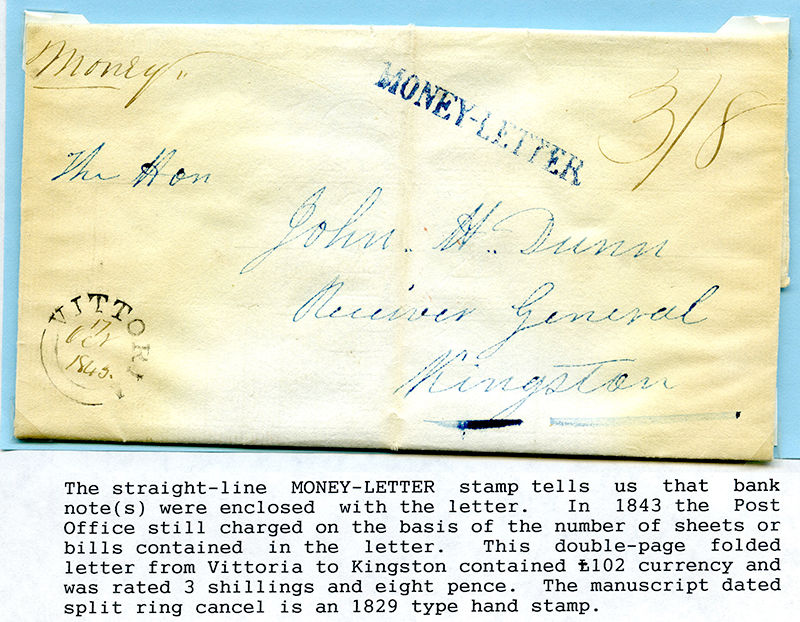 Money
MONEY-LETTER
3/8
The Hon
John. H. Dunn
Receiver General
Kingston
VITTORIA
17
Oct
1843.
The straight-line MONEY-LETTER stamp tells us that bank
note(s) were enclosed with the letter. In 1843 the Post
Office still charged on the basis of the number of sheets or
bills contained in the letter. This double-page folded
letter from Vittoria to Kingston contained ₤102 currency and
was rated 3 shillings and eight pence. The manuscript dated
split ring cancel is an 1829 type hand stamp.